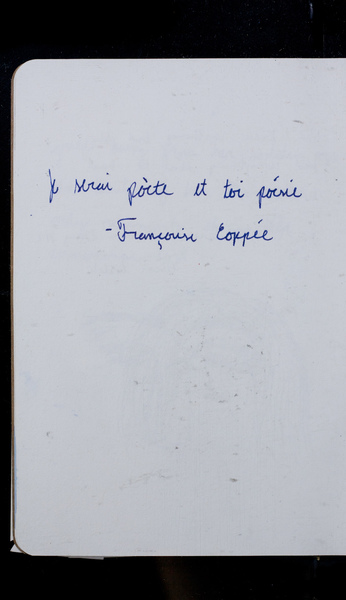 Je serai pöete et toi poésie
- Françoise Coppée